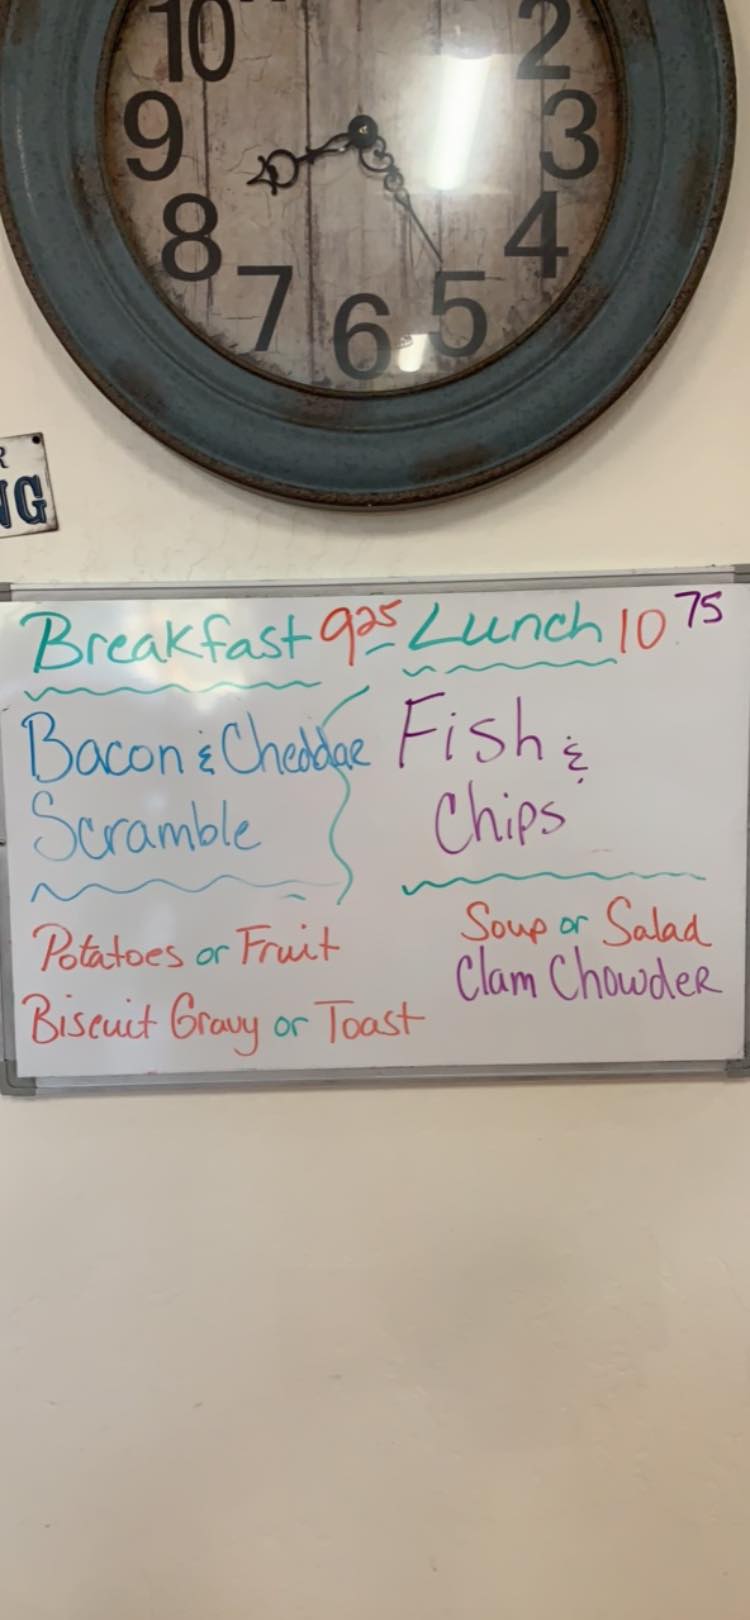 10
2
9
3
8
4
7
5
6
R
NG
Breakfast 9.25
Bacon & Cheddar
Scramble
Potatoes or Fruit
Biscuit Gravy or Toast
Lunch 10.75
Fish &
Chips
Soup or Salad
Clam Chowder